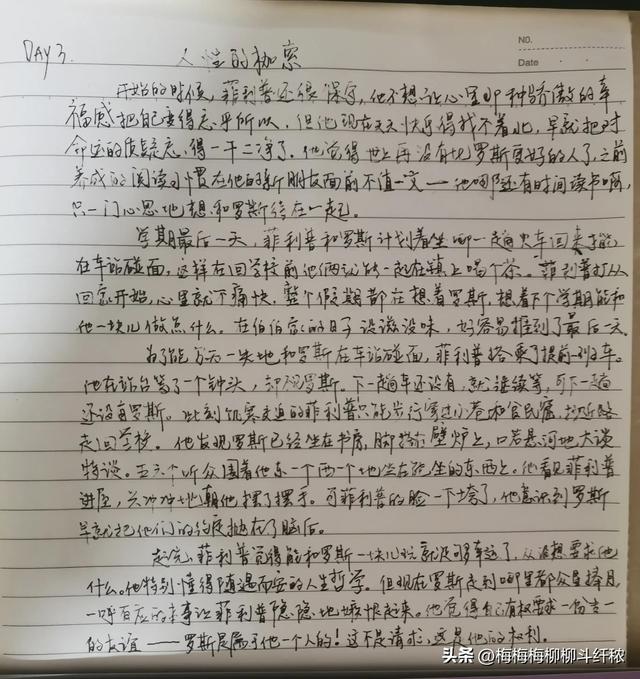 NO.
DAY 3.
人性的枷锁
Date
开始的时候，菲利普还很保守，他不想让心里那种骄傲的幸
福感把自己变得忘乎所以，但他现在天天快乐得找不着北，早就把对
命运的质疑忘得一干二净了。他觉得世上再没有比罗斯更好的人了，之前
养成的阅读习惯在他的新朋友面前不值一文——他哪还有时间读书啊，
只一门心思地想和罗斯待在一起。
学期最后一天，菲利普和罗斯计划着坐哪一趟火车回来才能
在车站碰面，这样在回学校前他俩就能一起在镇上喝个茶。菲利普打从
回家开始，心里就不痛快，整个假期都在想着罗斯，想着下个学期能和
他一块儿做点什么。在伯伯家的日子没滋没味，好容易捱到了最后一天
为了能万无一失地和罗斯在车站碰面，菲利普搭乘了提前一班车。
他在站台等了一个钟头，却不见罗斯。下一趟车还没有，就继续等，可下一趟
还没有罗斯。此刻饥寒交迫的菲利普只能步行穿过小巷和贫民窟，抄近路
走回学校。他发现罗斯已经坐在书房，脚搭在壁炉上，口若悬河地大谈
特谈。五六个听众围着他东一个西一个地坐在能坐的东西上。他看见菲利普
进屋，兴冲冲地朝他摆了摆手。可菲利普的脸一下垮了，他意识到罗斯
早就把他们的约定抛在了脑后。
起先，菲利普觉得能和罗斯一块儿玩就足够幸运了，从没想要求他
什么。他特别懂得随遇而安的人生哲学。但现在罗斯走到哪里都众星捧月，
一呼百应的本事让菲利普隐隐地嫉恨起来。他觉得自己有权要求一份专一
的友谊——罗斯是属于他一个人的！这不是请求，这是他的权利。
头条 @梅梅梅柳柳斗纤秾